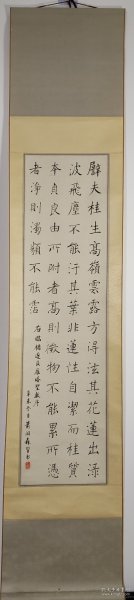 譬夫桂生高嶺雲露方得泫其花蓮出淥
波飛塵不能汙其葉非蓮性自潔而桂質
本貞良由所附者高則微物不能累所憑
者淨則濁類不能霑
右臨褚遂良雁塔聖教序